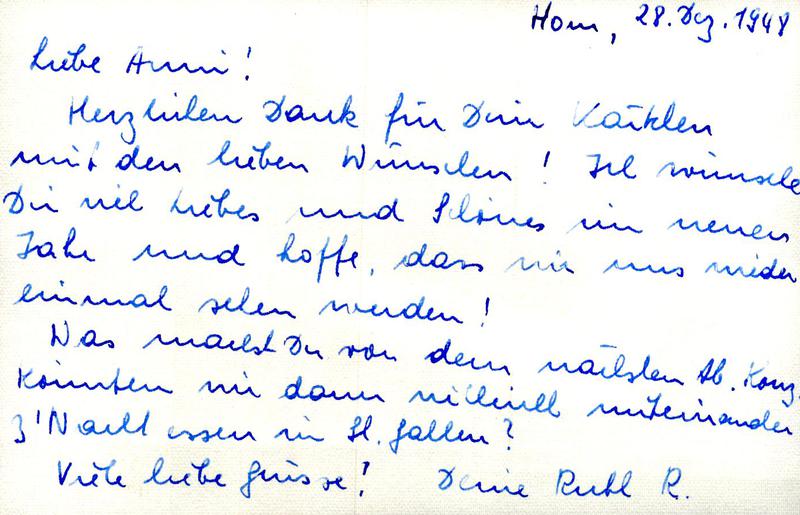 Horn, 28. Dez. 1948
Liebe Anni!
Herzlichen Dank für Dein Kärtchen
mit den lieben Wünschen! Ich wünsche
Dir viel Liebes und Schönes im neuen
Jahr und hoffe, dass wir uns wieder
einmal sehen werden!
Was machst Du vor dem nächsten Ab. Konz.
Könnten wir dann vielleicht miteinander
z'Nacht essen in St. Gallen?
Viele liebe Grüsse! Deine Ruth R.